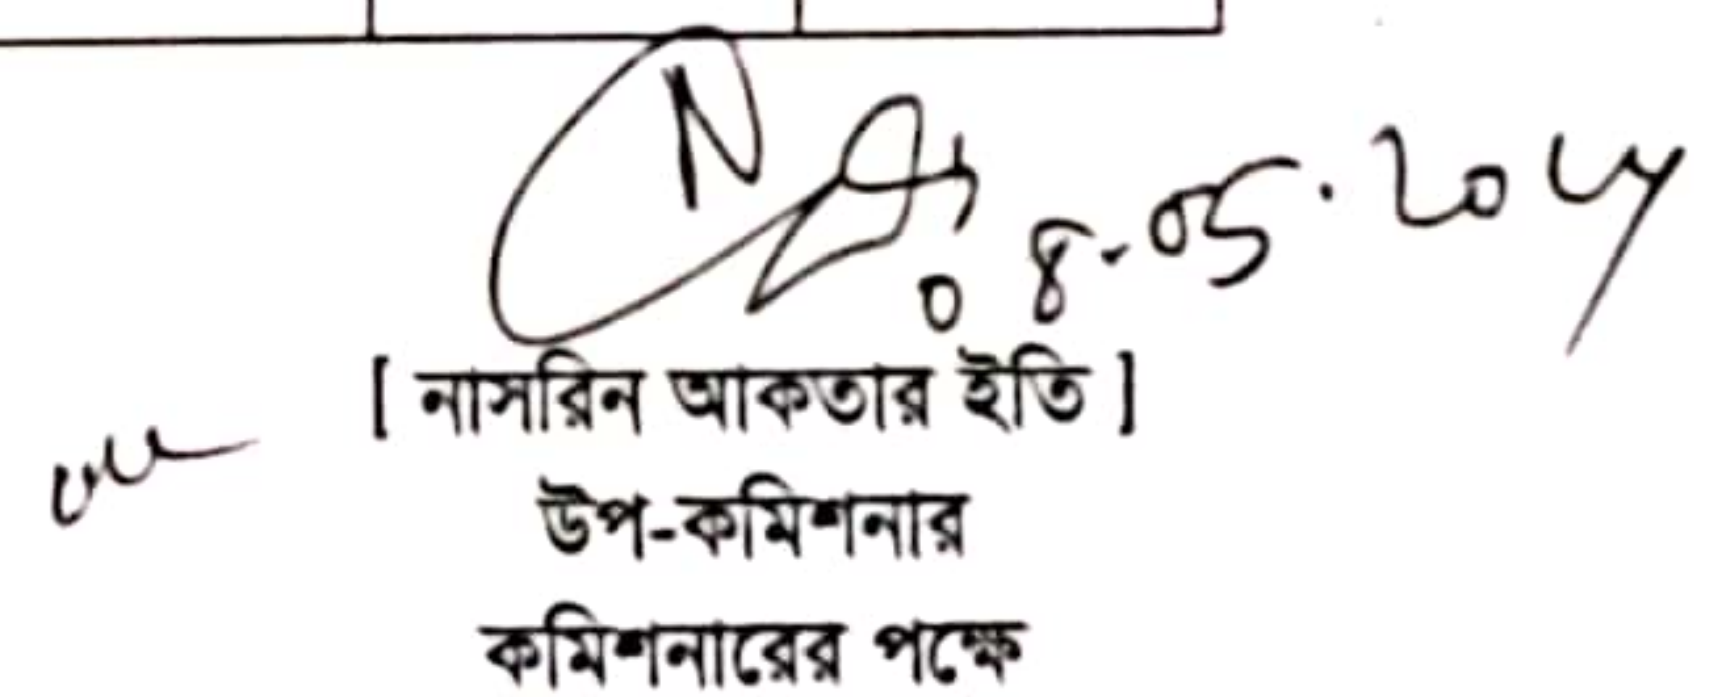 08-05.2024
[ নাসরিন আকতার ইতি ]
উপ-কমিশনার
কমিশনারের পক্ষে